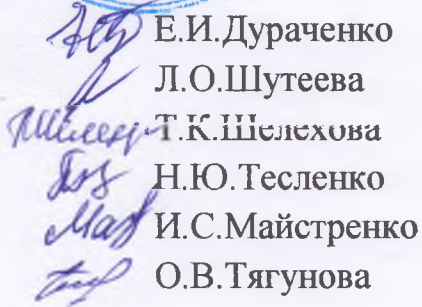 Е.И.Дураченко
Л.О.Шутеева
Т.К.Шелехова
Н.Ю.Тесленко
И.С.Майстренко
О.В.Тягунова